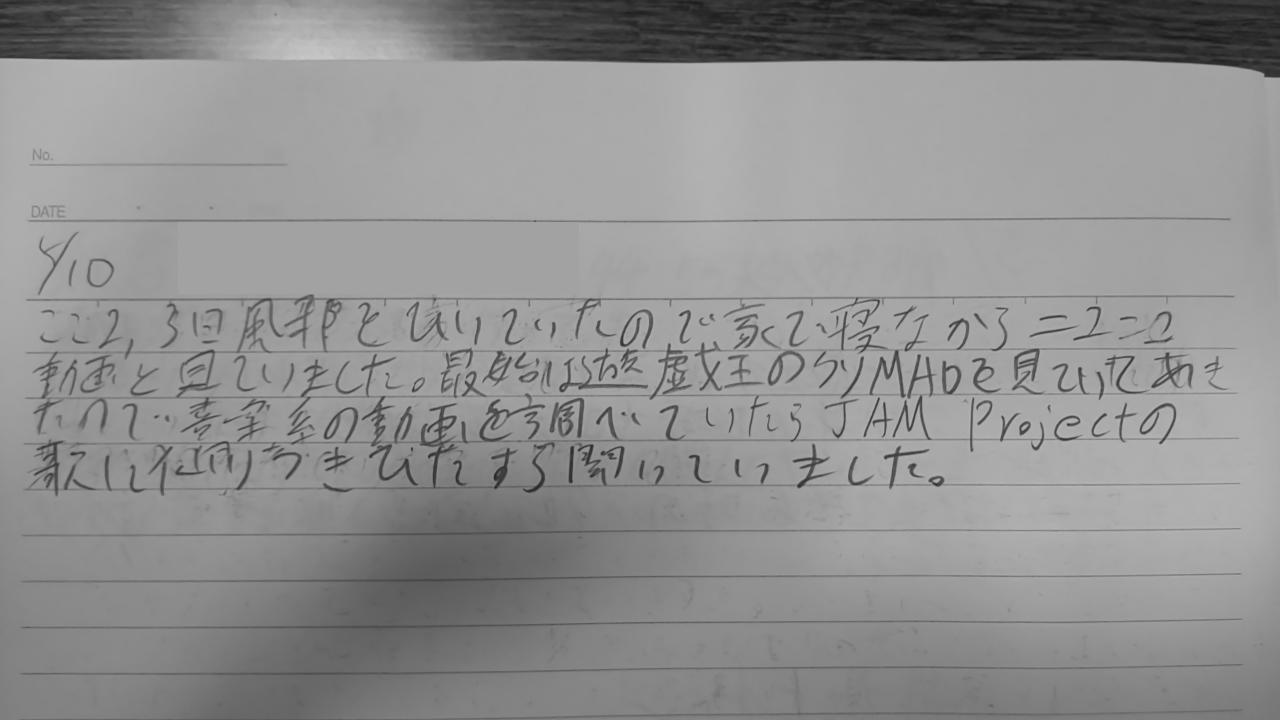 No.
DATE
4/10
ここ2,3日風邪を引いていたので家で寝ながらニコニコ
動画を見ていました。最始は遊戯王のクソMADを見ていてあき
たので音楽系の動画を調べていたらJAM Projectの
歌に行き着きひたすら聞いていました。